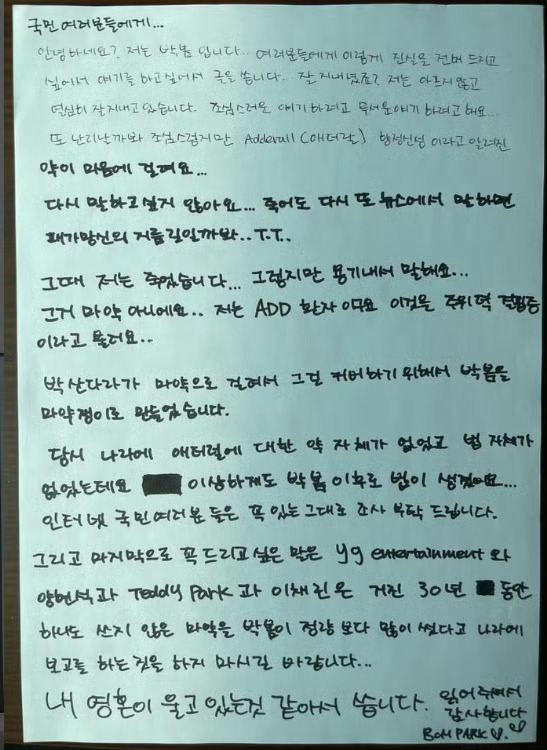 국민 여러분들에게...
안녕하세요? 저는 박봄 입니다.. 여러분들에게 이렇게 진실을 전해 드리고
싶어서 얘기를 하고싶어서 글을 씁니다.. 잘 지내셨죠? 저는 아프지않고
열심히 잘지내고 있습니다. 조심스러운 얘기하려고 무서운얘기 하려고 해요...
또 난리날까봐 조심스럽지만 Adderall (애더럴) 향정신성 이라고 알려진
약이 마음에 걸려요...
다시 말하고싶지 않아요... 죽어도 다시 또 뉴스에서 말하면
패가망신의 지름길일까봐..T.T..
그때 저는 죽었습니다... 그렇지만 용기내서 말해요...
그거 마약 아니에요.. 저는 ADD 환자 이구요 이것을 주위력 결핍증
이라고 불러요..
박산다라가 마약으로 걸려서 그걸 커버하기 위해서 박봄을
마약쟁이로 만들었습니다.
당시 나라에 애더럴에 대한 약 자체가 없었고 법 자체가
없었는데요 이상하게도 박봄 이후로 법이 생겼어요...
인터넷 국민여러분 들은 꼭 있는그대로 조사 부탁 드립니다.
그리고 마지막으로 꼭드리고싶은 말은 yg entertainment 와
양현석과 Teddy Park 과 이채린은 거진 30년 동안
하나도 쓰지 않은 마약을 박봄이 정량 보다 많이 썼다고 나라에
보고를 하는것을 하지 마시길 바랍니다...
내 영혼이 울고있는것 같아서 씁니다.
읽어주셔서
감사합니다
BOM PARK